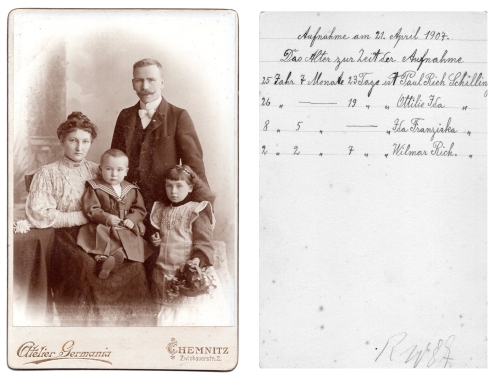 Atelier Germania
CHEMNITZ
Zwickauerstr. 2.
Aufnahme am 21. April 1907.
Das Alter zur Zeit der Aufnahme
25 Jahr 7 Monate 23 Tage ist Paul Rich Schilling
26 „ — 19 „ „ Ottilie Ida
8 „ 5 „ — „ Ida Franziska „
2 „ 2 „ 7 „ „ Wilmar Rich. „